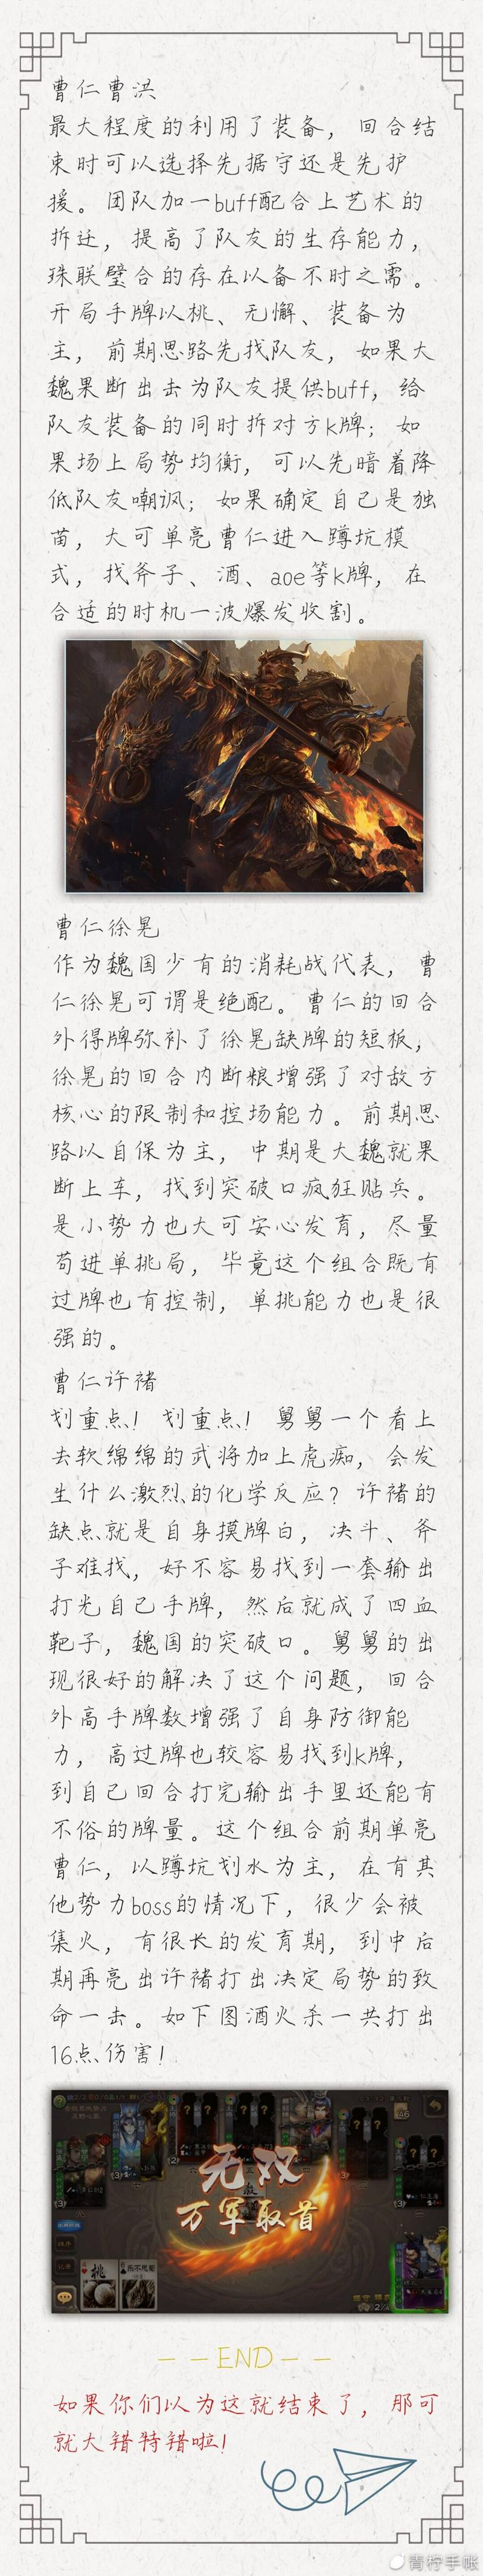 曹仁曹洪
最大程度的利用了装备，回合结
束时可以选择先据守还是先护
援。团队加一buff配合上艺术的
拆迁，提高了队友的生存能力，
珠联璧合的存在以备不时之需。
开局手牌以桃、无懈、装备为
主，前期思路先找队友，如果大
魏果断出击为队友提供buff，给
队友装备的同时拆对方k牌；如
果场上局势均衡，可以先暗着降
低队友嘲讽；如果确定自己是独
苗，大可单亮曹仁进入蹲坑模
式，找斧子、酒、aoe等k牌，在
合适的时机一波爆发收割。
曹仁徐晃
作为魏国少有的消耗战代表，曹
仁徐晃可谓是绝配。曹仁的回合
外得牌弥补了徐晃缺牌的短板，
徐晃的回合内断粮增强了对敌方
核心的限制和控场能力。前期思
路以自保为主，中期是大魏就果
断上车，找到突破口疯狂贴兵。
是小势力也大可安心发育，尽量
苟进单挑局，毕竟这个组合既有
过牌也有控制，单挑能力也是很
强的。
曹仁许褚
划重点！划重点！舅舅一个看上
去软绵绵的武将加上虎痴，会发
生什么激烈的化学反应？许褚的
缺点就是自身摸牌白，决斗、斧
子难找，好不容易找到一套输出
打光自己手牌，然后就成了四血
靶子，魏国的突破口。舅舅的出
现很好的解决了这个问题，回合
外高手牌数增强了自身防御能
力，高过牌也较容易找到k牌，
到自己回合打完输出手里还能有
不俗的牌量。这个组合前期单亮
曹仁，以蹲坑划水为主，在有其
他势力boss的情况下，很少会被
集火，有很长的发育期，到中后
期再亮出许褚打出决定局势的致
命一击。如下图酒火杀一共打出
16点伤害！
无双
万军取首
桃
——END——
如果你们以为这就结束了，那可
就大错特错啦！
青柠手帐